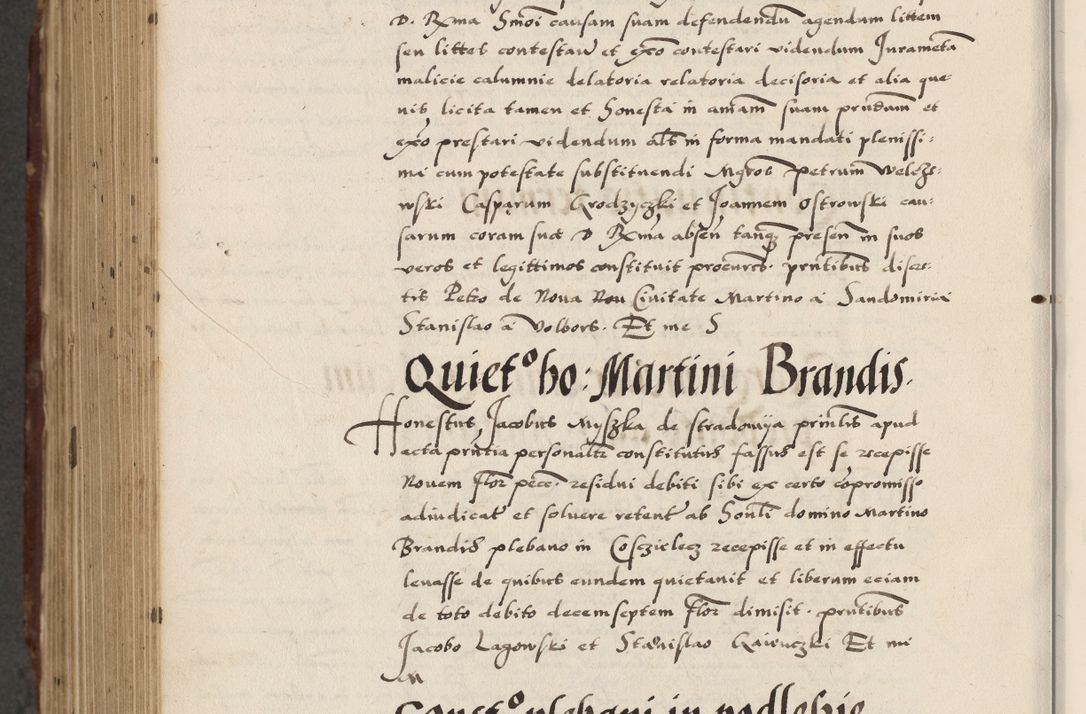 D. Rxma Smoi causam suam defendendu agendum littem
seu littes contestari et exco contestari videndum Jurameta
malicie calumnie delatoria relatoria decisoria et alia que-
uis licita tamen et Honesta in amam suam prndam et
exco prestari videndum als in forma mandati plenissi:
me cum potestate substituendi Mgros Petrum Welczs:
wski Casparum Grodzyczki et Joannem Ostrowski cau:
sarum coram sua D Rxma absen tanq presen in suos
veros et legittimos constituit procures. prntibus discre:
tis Petro de Noua Ciuitate Martino a Sandomiria
Stanislao a Volbors. Et me S
Quiet° ho: Martini Brandis.
Honestus Jacobus Myszka de stradomya prinlis apud
acta prntia personalr constitutus fassus est se recepisse
Nouem flor pece. residui debiti sibi ex certo copromisso
adiudicat et soluere retent ab Honli domino Martino
Brandis plebano in Cosczielecz recepisse et in effectu
leuasse de quibus eundem quietauit et liberum eciam
de toto debito decem septem flor dimisit. prntibus
Jacobo Lagowski et Stanislao Et me
plebani in podlehie